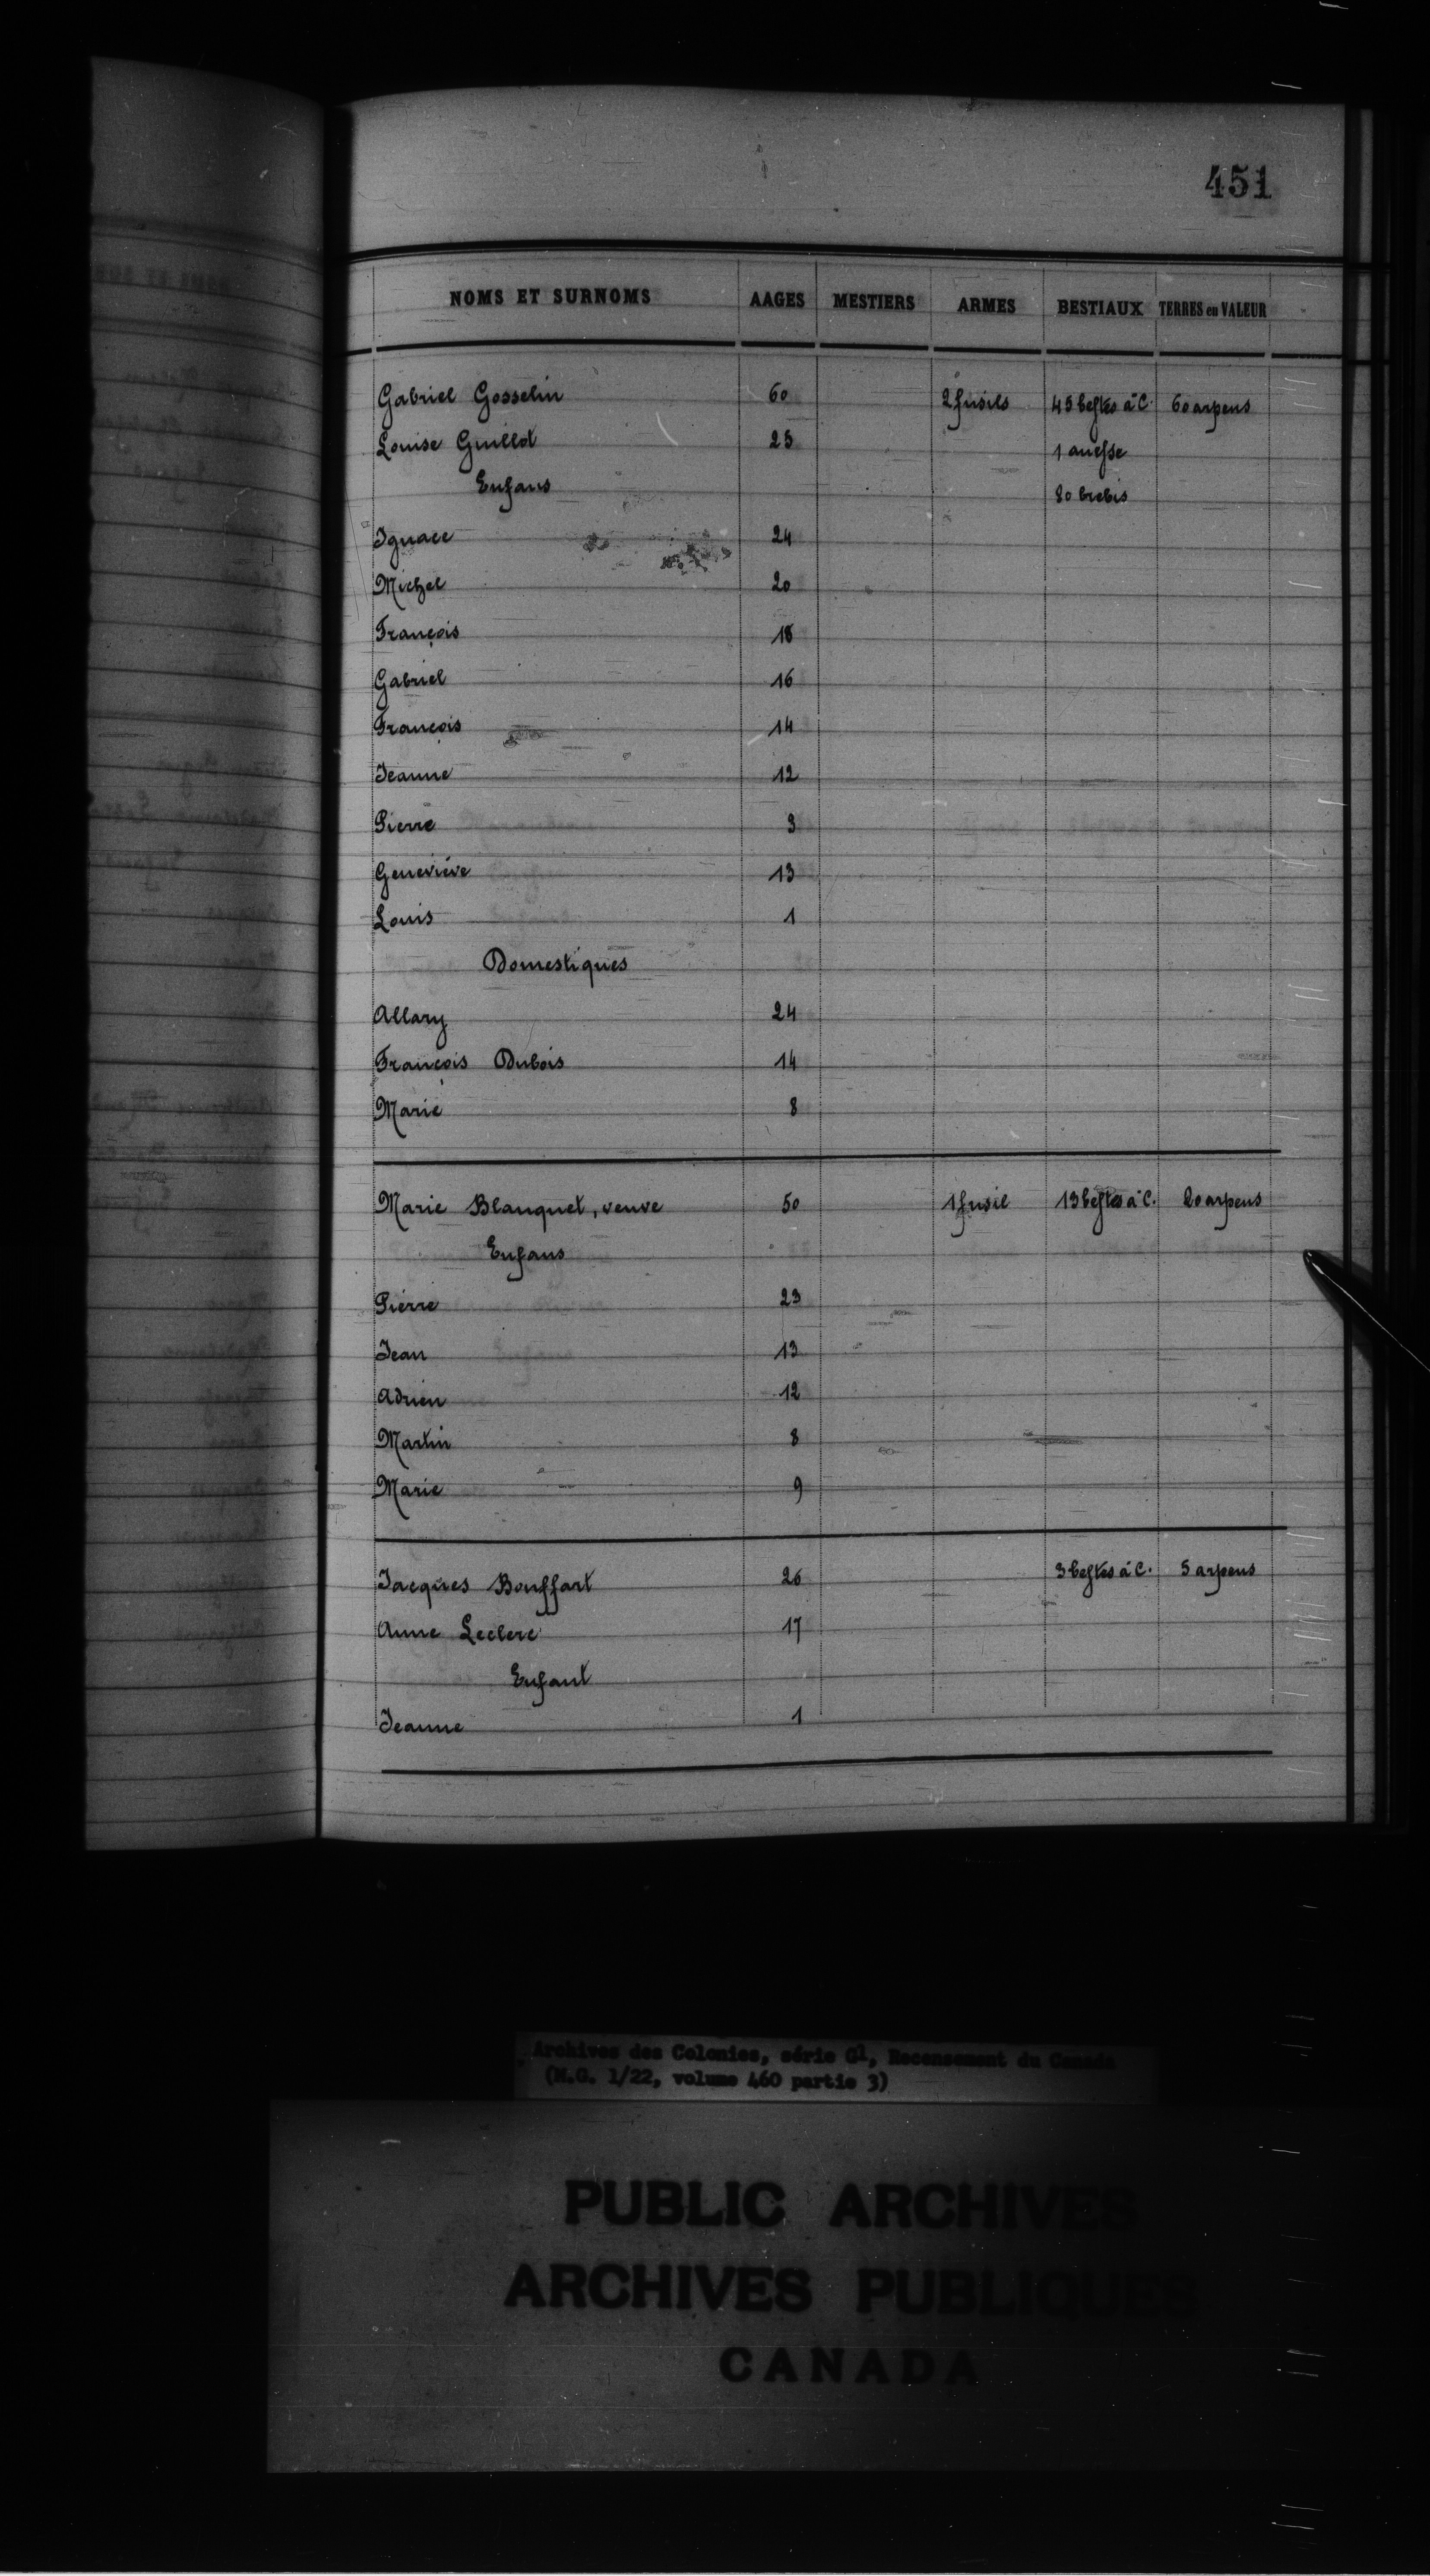 451
NOMS ET SURNOMS AAGES MESTIERS ARMES BESTIAUX TERRES en VALEUR
Gabriel Gosselin 60 2 fusils 45 bestes à C. 60 arpens
Louise Guillot 25 1 anesse
Enfans 80 brebis
Ignace 24
Michel 20
François 18
Gabriel 16
François 14
Jeanne 12
Pierre 3
Geneviève 13
Louis 1
Domestiques
Allary 24
François Dubois 14
Marie 8
Marie Blanquet, veuve 50 1 fusil 13 bestes à C. 20 arpens
Enfans
Pierre 23
Jean 13
Adrien 12
Martin 8
Marie 9
Jacques Bouffart 26 3 bestes à C. 5 arpens
Anne Leclerc 17
Enfant
Jeanne 1
Archives des Colonies, série G1, Recensement du Canada
(M.G. 1/22, volume 460 partie 3)
PUBLIC ARCHIVES
ARCHIVES PUBLIQUES
CANADA